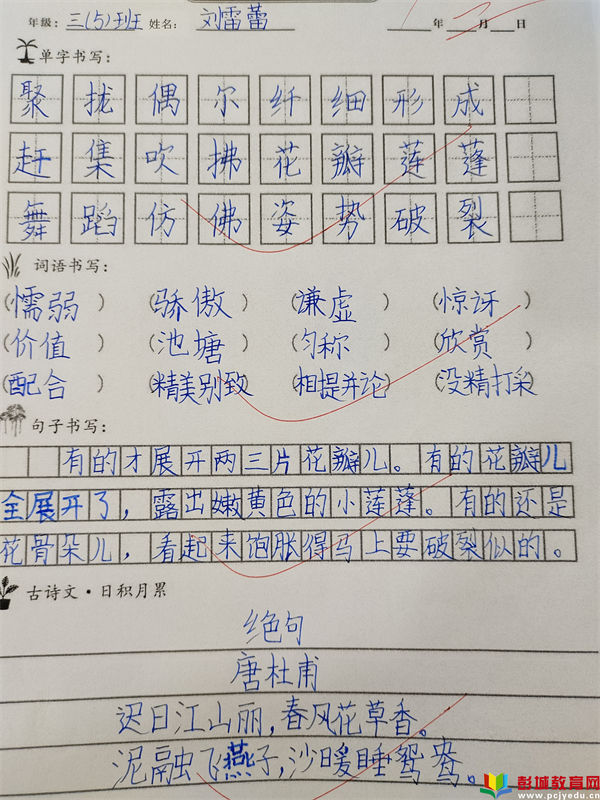 年级：三(5)班 姓名： 刘雷蕾 年 月 日
单字书写：
聚 拢 偶 尔 纤 细 形 成
赶 集 吹 拂 花 瓣 莲 蓬
舞 蹈 仿 佛 姿 势 破 裂
词语书写：
(懦弱) (骄傲) (谦虚) (惊讶)
(价值) (池塘) (匀称) (欣赏)
(配合) (精美别致) (相提并论) (没精打采)
句子书写：
有的才展开两三片花瓣儿。有的花瓣儿
全展开了，露出嫩黄色的小莲蓬。有的还是
花骨朵儿，看起来饱胀得马上要破裂似的。
古诗文·日积月累
绝句
唐杜甫
迟日江山丽，春风花草香。
泥融飞燕子，沙暖睡鸳鸯。
彭城教育网
www.pcjyedu.cn